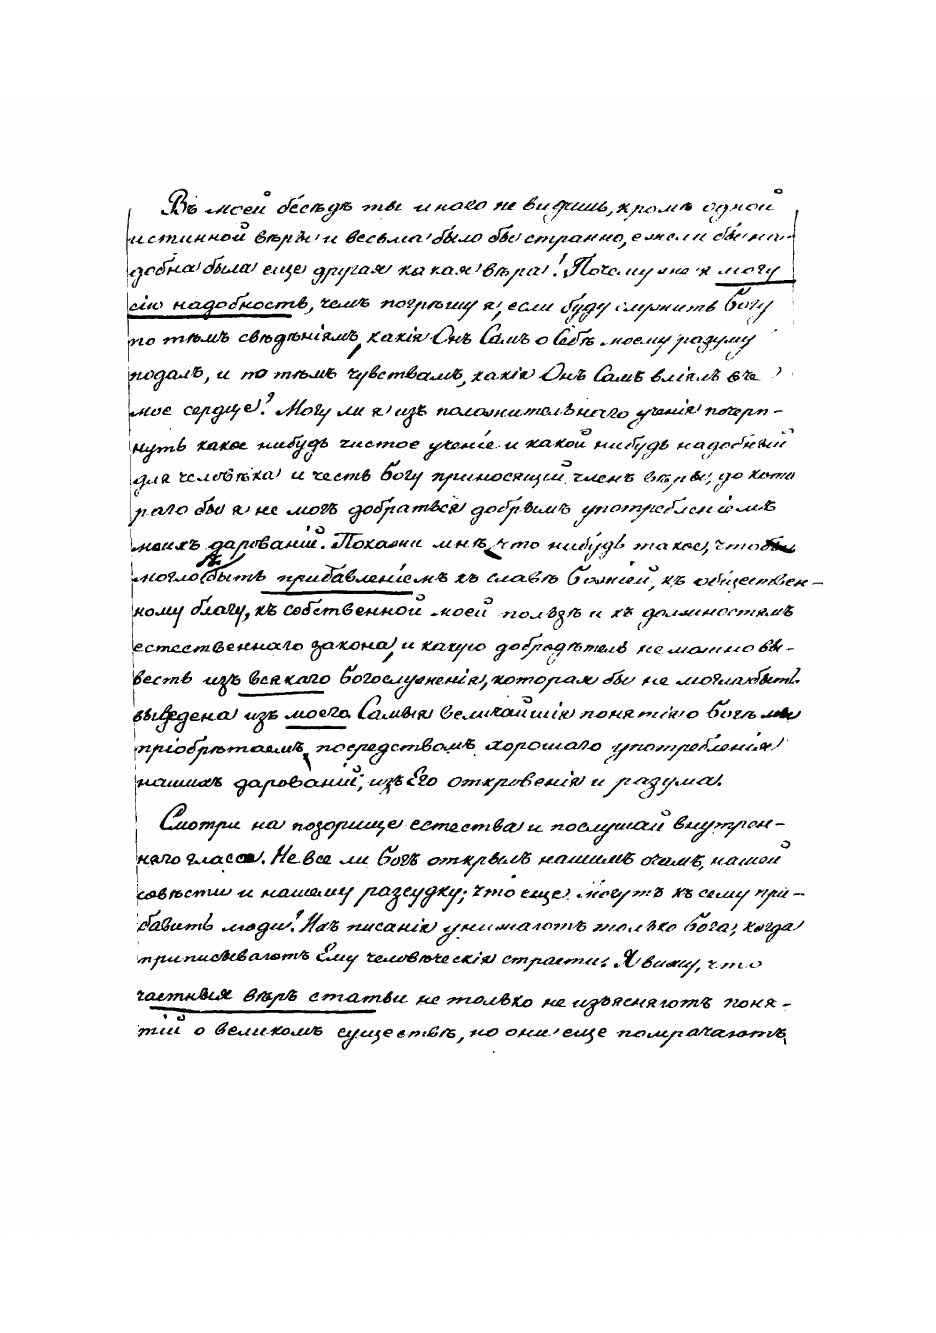 Въ моей бесѣдѣ ты инаго не видишь, кромѣ одной
истинной вѣры и весьма было бы странно, ежели бы на-
добна была еще другая какая вѣра! Почему же я могу
сію надобность, чемъ погрѣшу я, если буду служить Богу
по тѣмъ свѣдѣніямъ, какія Онъ Самъ о Себѣ моему разуму
подалъ, и по тѣмъ чувствамъ, какія Онъ Самъ вліялъ въ
мое сердце? Могу ли я изъ положительнаго ученія почерп-
нуть какое нибудь чистое ученіе и какой нибудь надобный
для человѣка и честь Богу приносящій членъ вѣры, до кото
раго бы я не могъ добраться добрымъ употребленіемъ
моихъ дарованій. Покажи мнѣ, что нибудь такое, что
могло бы быть прибавленіемъ къ славѣ Божіей, къ обществен-
ному благу, къ собственной моей пользѣ и къ должностямъ
естественнаго закона, и какую добродѣтель не можно вы-
весть изъ всякаго Богослуженія, которая бы не могла быть
выведена изъ моего. Самыя величайшія понятія о Богѣ мы
пріобрѣтаемъ, посредствомъ хорошаго употребленія
нашихъ дарованій, изъ Его откровенія и разума.
Смотри на позорище естества и послушай внутрен-
няго гласа. Не все ли Богъ открылъ нашимъ очамъ, нашей
совѣсти и нашему разсудку; что еще могутъ къ сему при-
бавить люди? Ихъ писанія унижаютъ только Бога, когда
приписываютъ Ему человѣческія страсти. Я вижу, что
частныя вѣрѣ статьи не только не изъясняютъ поня-
тій о великомъ существѣ, но они еще помрачаютъ,